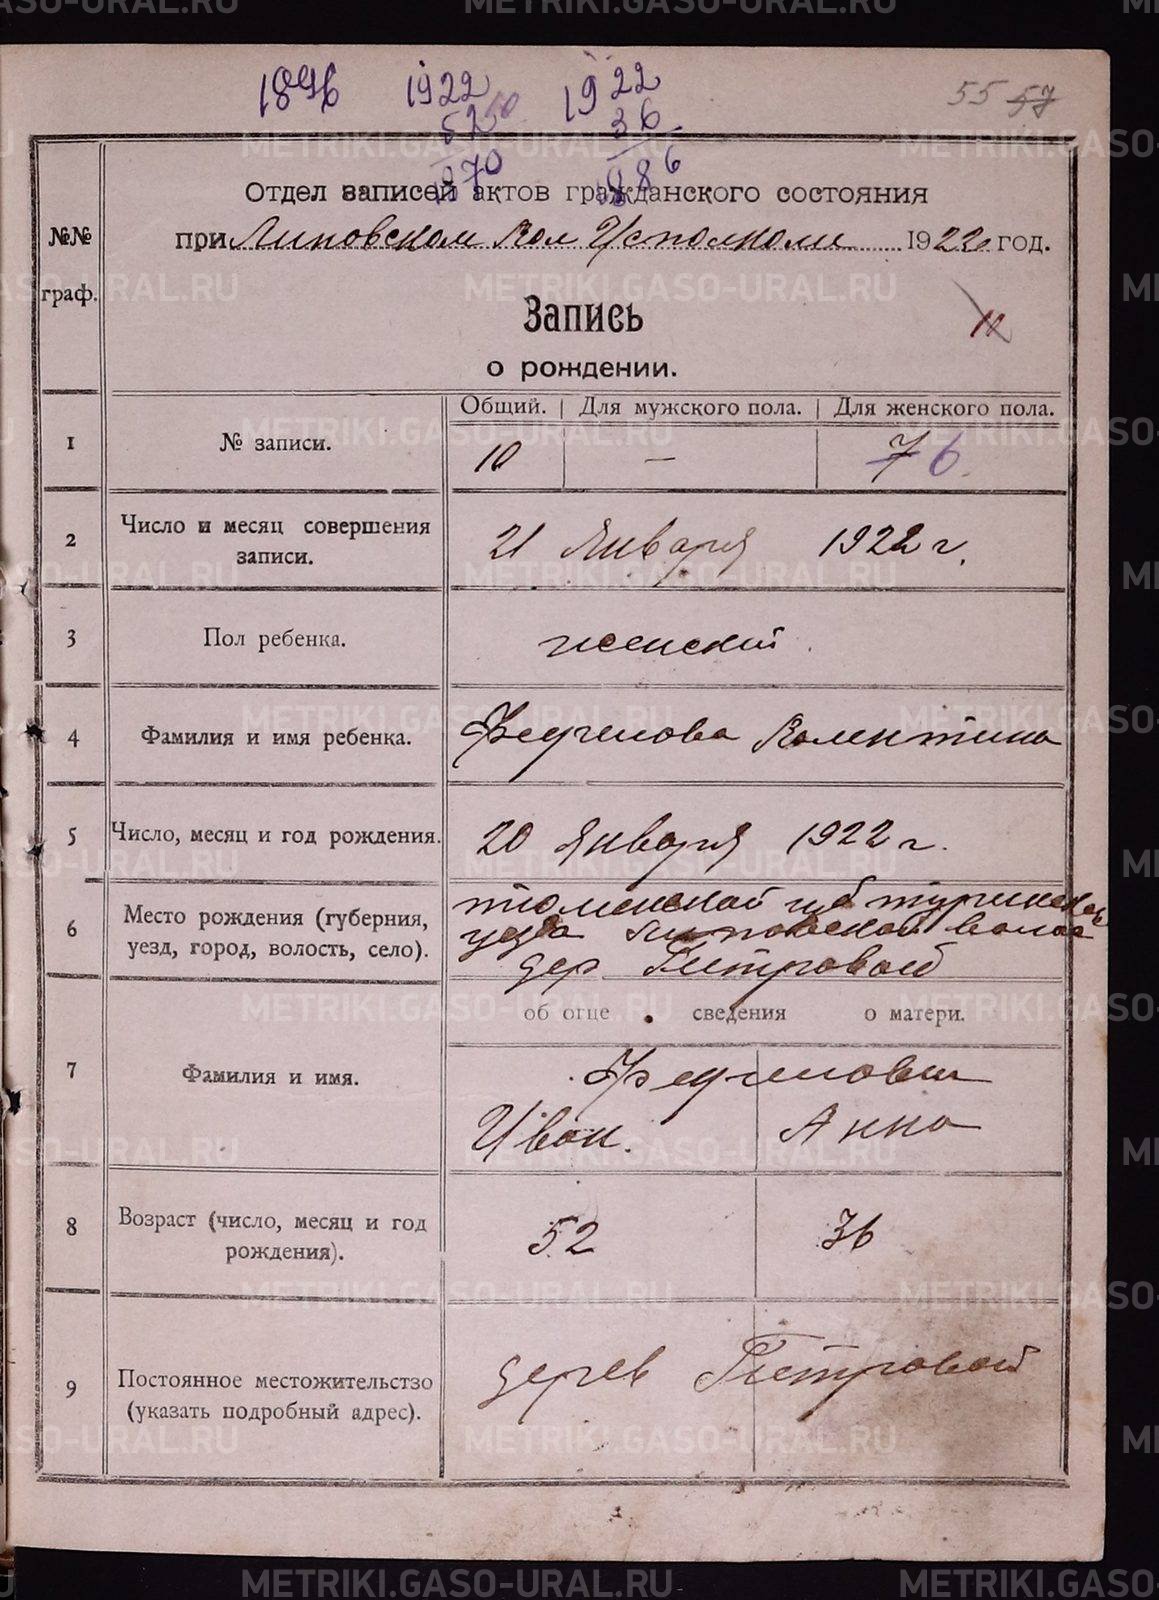 1896 1922 1922
52 50 36
1870 1886
55 57
Отдел записей актов гражданского состояния
№№ граф.
при Липовском Вол Исполкоме 1922 год.
Запись
10
о рождении.
Общий. Для мужского пола. Для женского пола.
1 № записи. 10 — 7 6.
2 Число и месяц совершения записи. 21 Января 1922 г.
3 Пол ребенка. женский
4 Фамилия и имя ребенка. Валентина
5 Число, месяц и год рождения. 20 Января 1922 г.
6 Место рождения (губерния, уезд, город, волость, село).
Тюменской губ Туринского
уезда Липовской волос
дер. Петровой
об отце сведения о матери.
7 Фамилия и имя.
Иван. Анна
8 Возраст (число, месяц и год рождения). 52 36
9 Постоянное местожительство (указать подробный адрес). дерев Петровой
METRIKI.GASO-URAL.RU